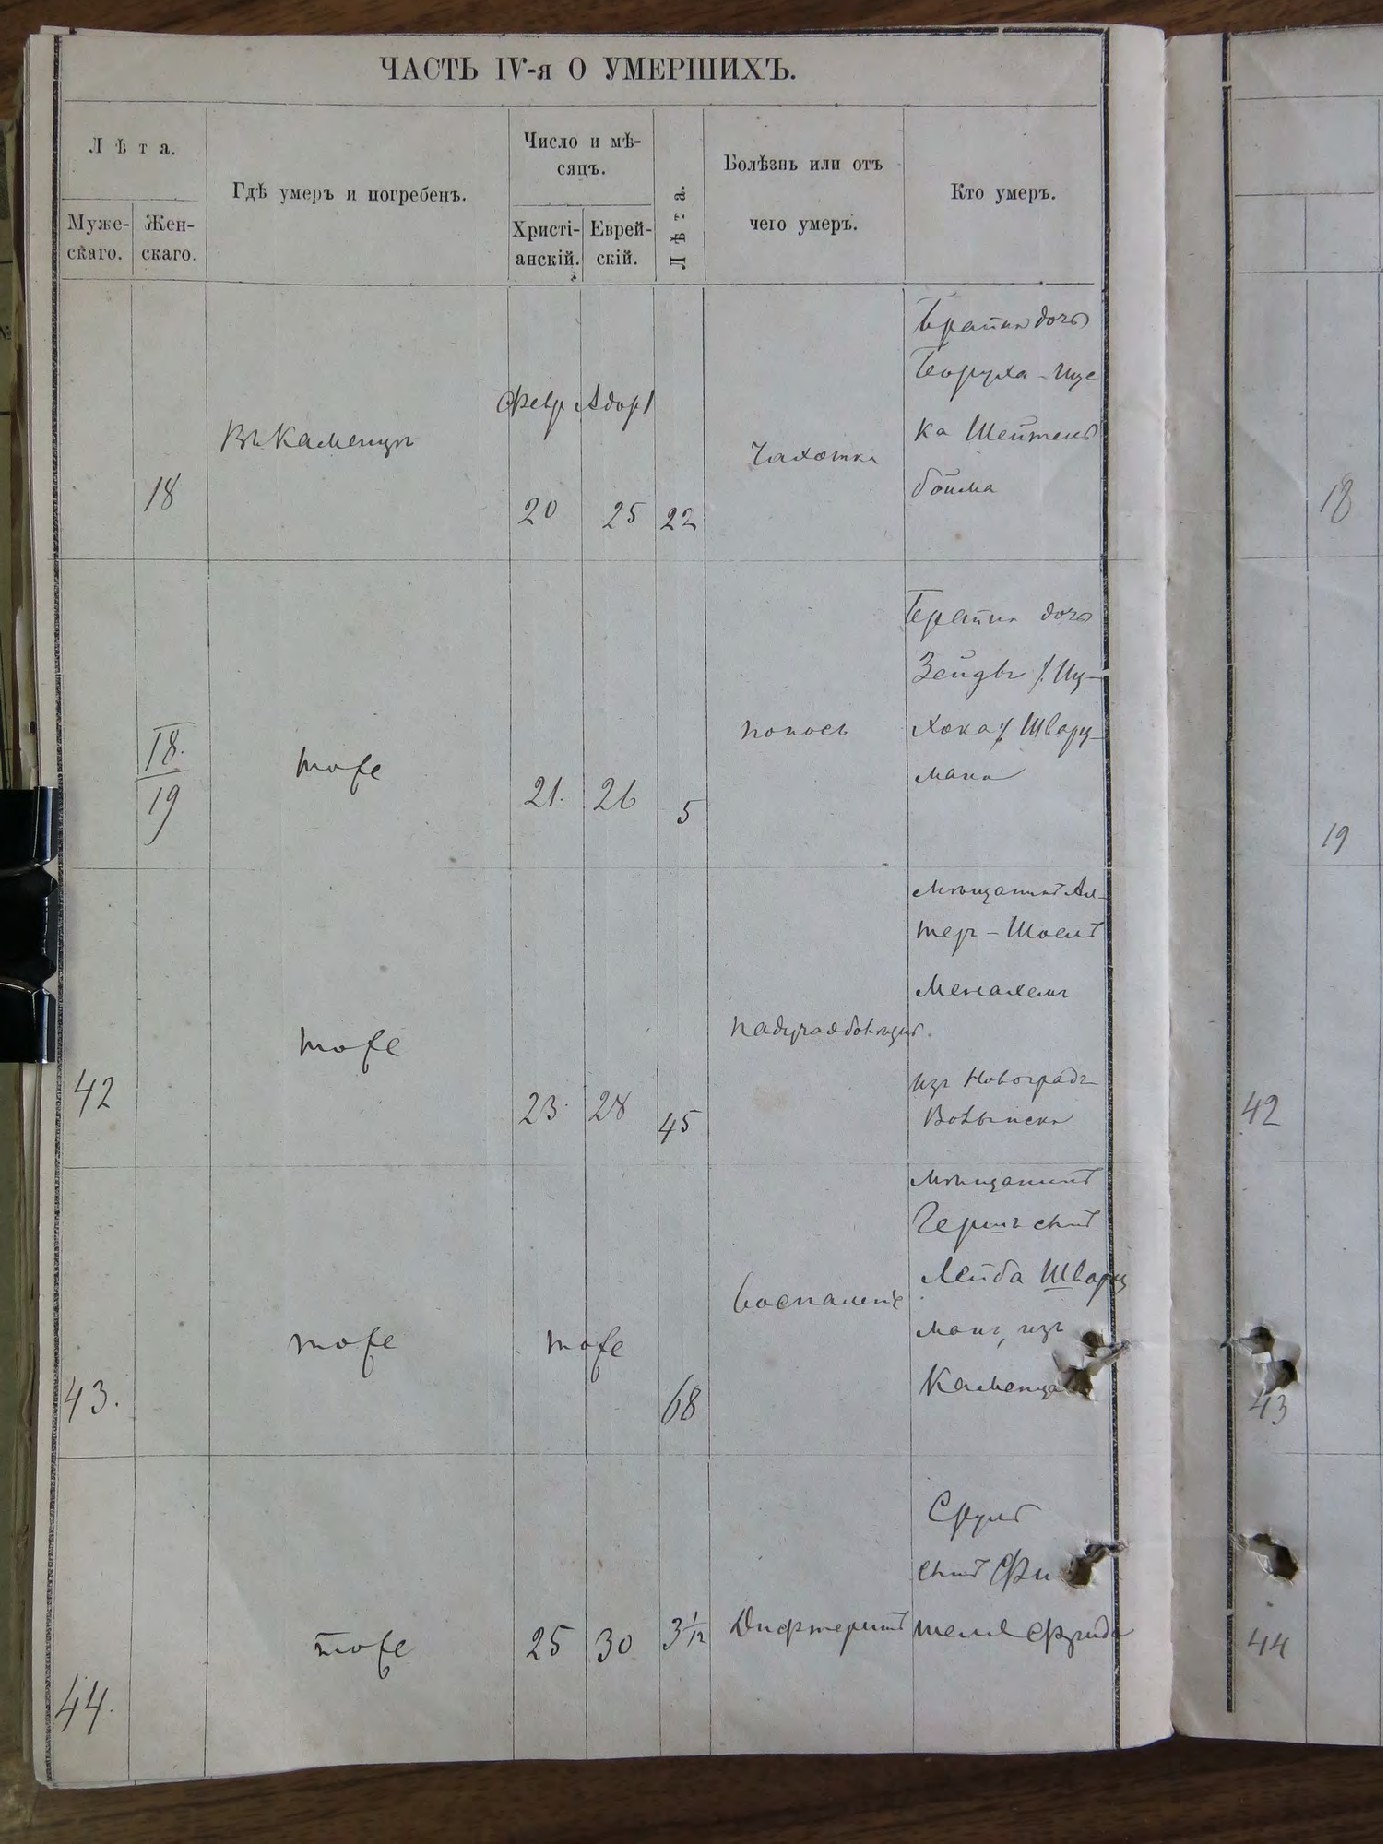 ЧАСТЬ IV-я О УМЕРШИХЪ.
Лѣта.
Муже-
скаго.
Жен-
скаго.
Гдѣ умеръ и погребенъ.
Число и мѣ-
сяцъ.
Христі-
анскій.
Еврей-
скій.
Лѣта.
Болѣзнь или отъ
чего умеръ.
Кто умеръ.
18
Въ Каменцѣ
Февр Адор 1
20 25 22
Чахотка
дочь
Боруха-Ице
ка Шейтель
бойма
18
18.
19
тоже
21. 26 5
поносъ
дочь
Зейдъ /: Иц-
хока :/ Шварц-
мана
19
42
тоже
23. 28 45
падучая болѣзнь.
мѣщанинъ Ал-
теръ-Шоелъ
Менахемъ
изъ Новоградъ
Волынска
42
43.
тоже
тоже
68
воспаленіе
мѣщанинъ
Гершъ сынъ
Лейба Шварц
манъ, изъ
Каменца
43
44.
тоже
25 30 3 1/12
Дифтеритъ
Сруль
сынъ Фи
шеля
44